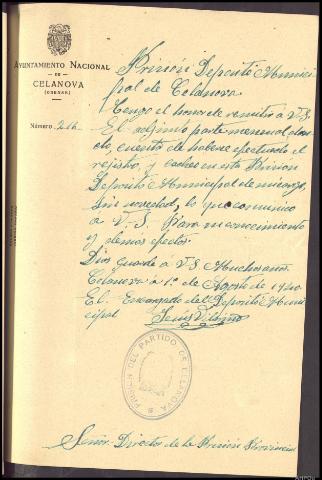 AYUNTAMIENTO NACIONAL
DE
CELANOVA
(ORENSE)
Número 216
Prisión Deposito Munici
pal de Celanova
Tengo el honor de remitir a V.S.
El adjunto parte mensual
cto, cuenta de haberse efectuado el
registro, y cacheo en esta Prisión
Deposito Municipal de mi cargo,
sin novedad, lo que comunico
a V.S. Para su conocimiento
y demas efectos.
Dios guarde a V.S. Muchos años.
Celanova a 1º de Agosto de 1940
El Encargado del Deposito Muni
cipal Jesús
PRISION DEL PARTIDO DE CELANOVA
Señor Director de la Prisión Provincial